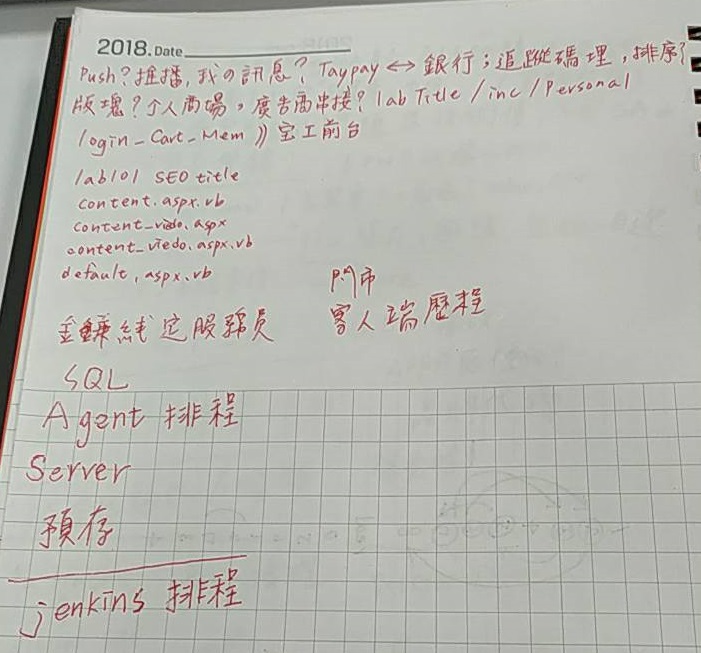 2018.Date
Push?推播,我の訊息? Taypay ↔ 銀行;追蹤碼理,排序?
版塊?个人商場,廣告商串接? lab Title / inc / Personal
login_Cart_Mem 》宝工前台
lab101 SEO title
content.aspx.vb
content_viedo.aspx
content_viedo.aspx.vb
default.aspx.vb
門市
定服務員
客人端歷程
SQL
Agent 排程
Server
預存
jenkins 排程